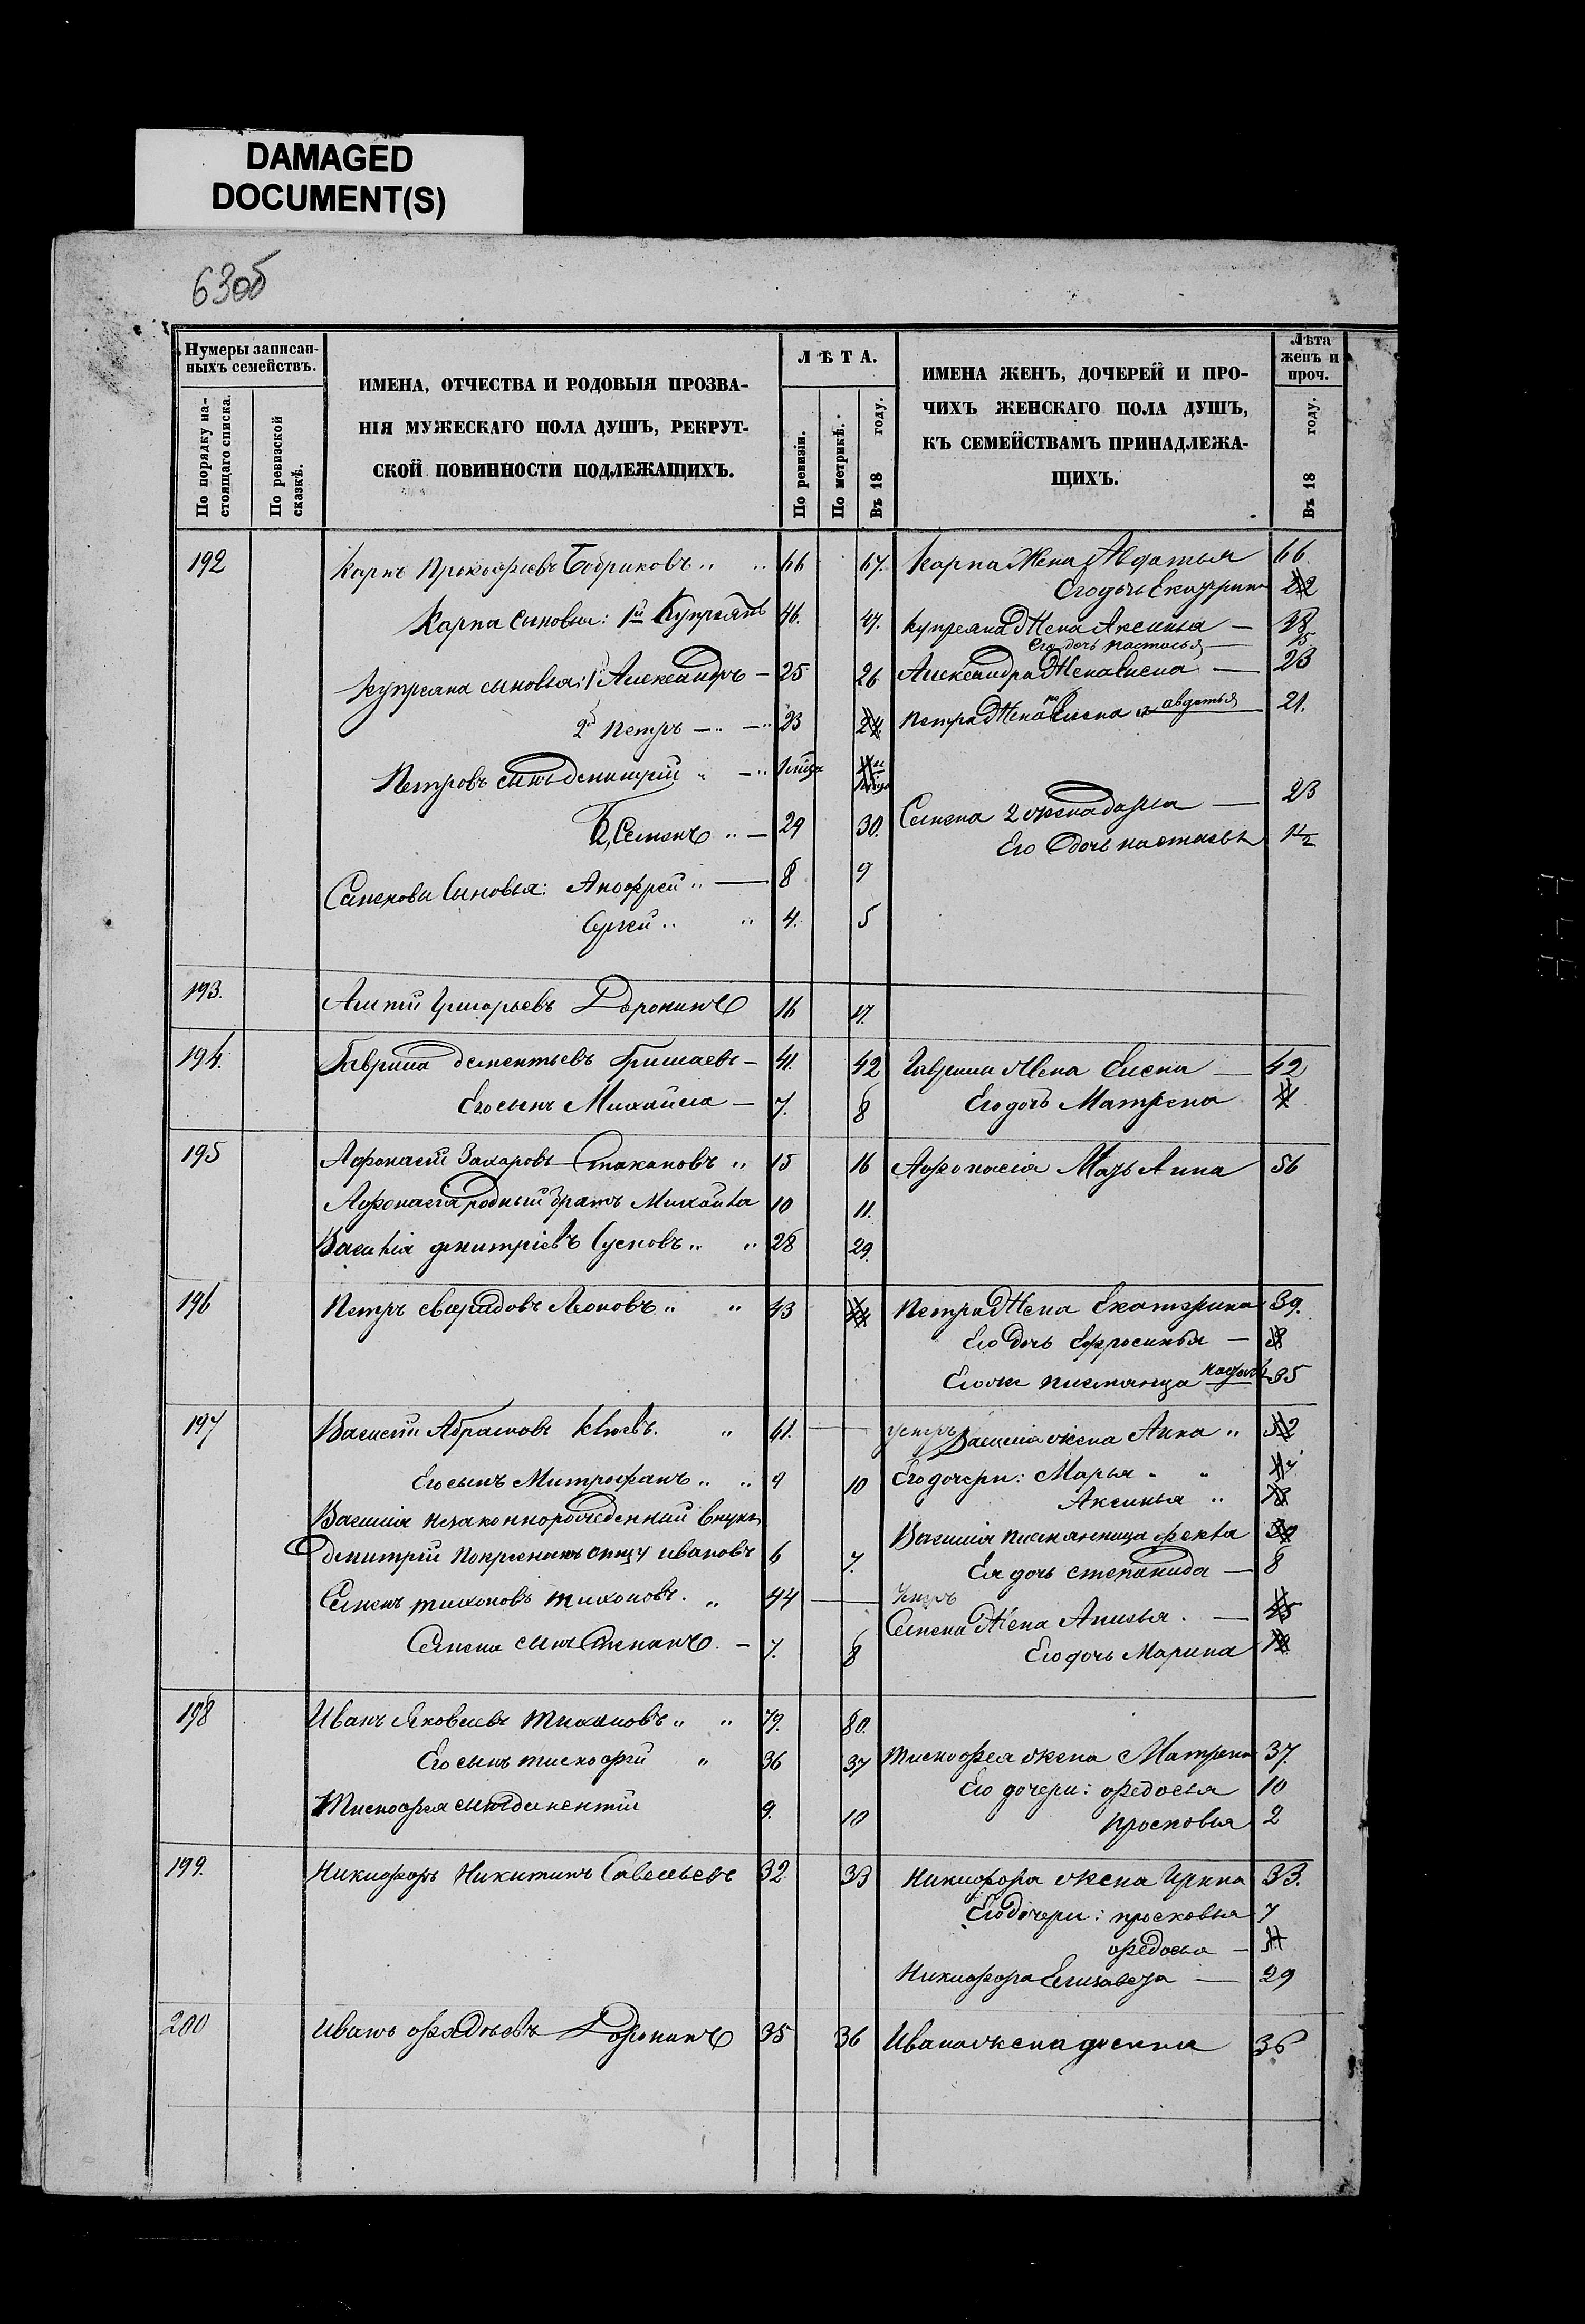 DAMAGED
DOCUMENT(S)
63об
Нумеры записан-
ныхъ семействъ.
По порядку на-
стоящаго списка.
По ревизской
сказкѣ.
ИМЕНА, ОТЧЕСТВА И РОДОВЫЯ ПРОЗВА-
НІЯ МУЖЕСКАГО ПОЛА ДУШЪ, РЕКРУТ-
СКОЙ ПОВИННОСТИ ПОДЛЕЖАЩИХЪ.
ЛѢТА.
По ревизіи.
По метрикѣ.
Въ 18 году.
ИМЕНА ЖЕНЪ, ДОЧЕРЕЙ И ПРО-
ЧИХЪ ЖЕНСКАГО ПОЛА ДУШЪ,
КЪ СЕМЕЙСТВАМЪ ПРИНАДЛЕЖА-
ЩИХЪ.
Лѣта
женъ и
проч.
Въ 18 году.
192 Карпъ Прокофьевъ Бобриковъ 66 67. Карпа Жена Авдотья 66
Его дочь Екатерина
Карпа сыновья: 1й Купреянъ 46. 47. Купреяна Жена Аксинья — 38
Его дочь Настасья — 15
Купреяна сыновья: 1 Александръ — 25 26 Александра Жена Елена — 23
2 Петръ — 23 24 Петра Жена авдотья 21.
Петровъ сынъ Дмитрій
2, Семенъ — 29 30. Семена 2 жена Дарья — 23
Его дочь настасья 1/2
Семеновы Сыновья: — 8 9
Сергей 4. 5
193. Григорьевъ Доронинъ 16 17.
194. Гаврила Дементьевъ Гришаевъ — 41. 42 Гаврилы Жена Елена — 42
Его сынъ Михайла — 7. 8 Его дочь Матрена
195 Афонасій Захаровъ Стакановъ 15 16 Афонасія Мать Анна 56
Афонасія родный братъ Михайла 10 11.
Василія Дмитріевъ Сусковъ 28 29.
196 Петръ Свиридовъ Леоновъ 43 44 Петра Жена Екатерина 39.
Его дочь Ефросинья —
Его же племянница 35
197 Василій Абрамовъ 41. умеръ Василія жена Анна
Его сынъ Митрофанъ 9 10 Его дочери: Марья
Аксинья
Василія незаконнорожденный внукъ
Дмитрій по крестному отцу Ивановъ 6 7. Василія племянница Фекла
Ея дочь Степанида — 8
Семенъ Тихоновъ Тихоновъ. 44 умеръ Семена Жена Анисья. —
Семена сынъ Степанъ. — 7. 8 Его дочь Марина
198 Иванъ Яковлевъ Тихановъ 79. 80.
Его сынъ Тимофей 36 37 Тимофея жена Матрена 37.
Его дочери: Федосья 10
Тимофея сынъ Дементій 9. 10 Просковья 2
199. Никифоръ Никитинъ Савельевъ 32 33 Никифора жена Ирина 33.
Его дочери: просковья 7
Федосья —
Никифора Елизавета — 29
200 Иванъ Фадѣевъ Доронинъ 35 36 Ивана жена 36